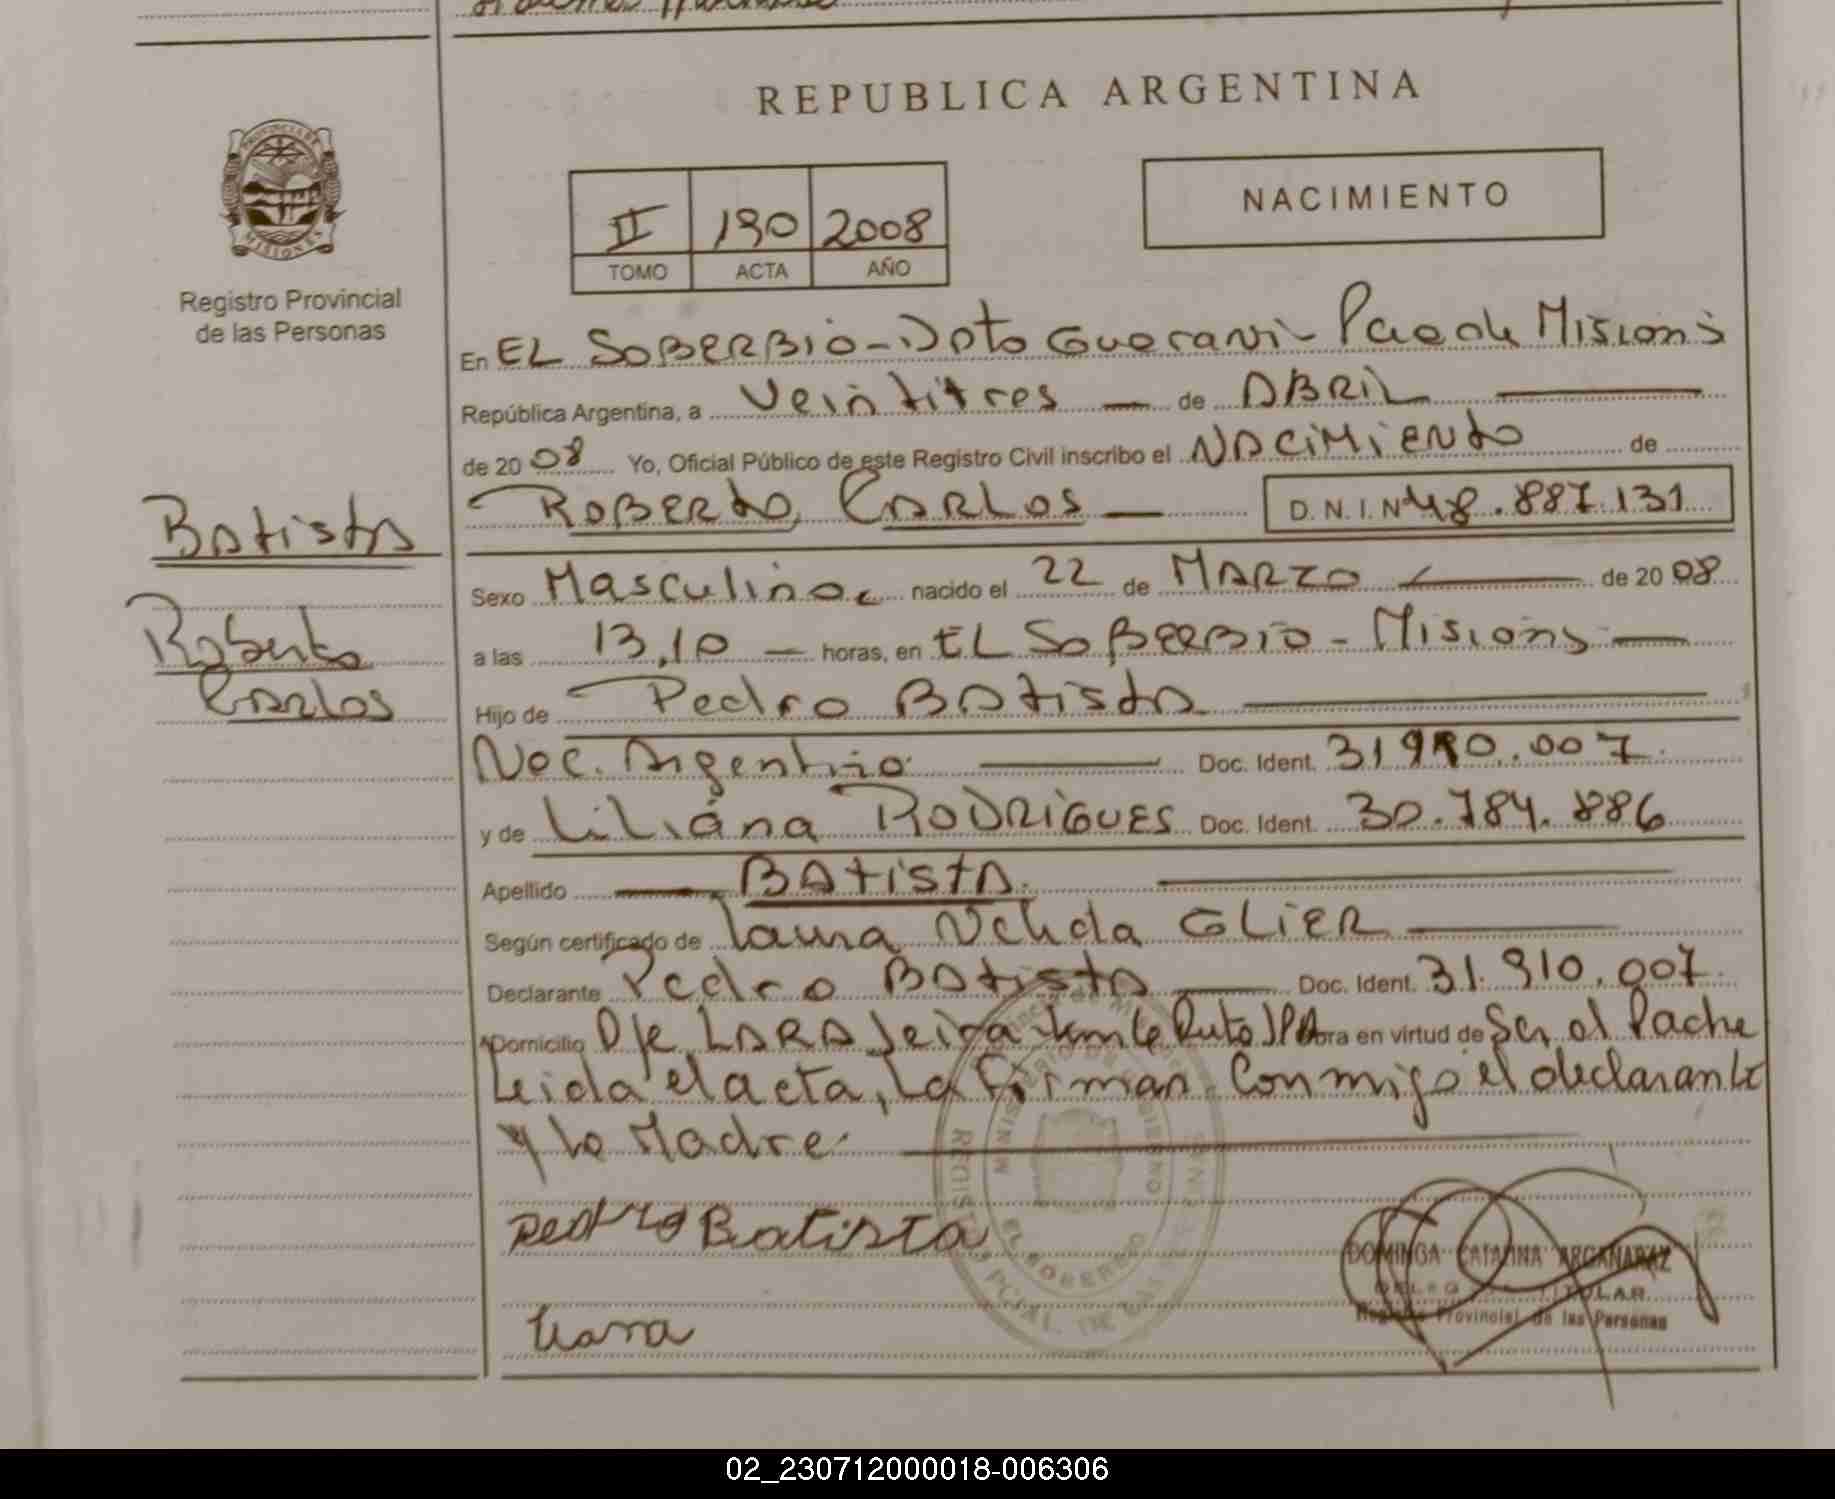 REPUBLICA ARGENTINA
PROVINCIA DE MISIONES
Registro Provincial
de las Personas
II 190 2008
TOMO ACTA AÑO
NACIMIENTO
En EL SOBERBIO - Dpto Guarani - Pcia de Misions
República Argentina, a Veintitres de ABRIL
de 2008 Yo, Oficial Público de este Registro Civil inscribo el NACIMIENTO de
ROBERTO CARLOS D.N.I. Nº 48.887.131
Batista
Roberto
Carlos
Sexo Masculino nacido el 22 de MARZO de 2008
a las 13,10 horas, en EL SOBERBIO - Misions
Hijo de Pedro BATISTA
Nac. Argentino Doc. Ident. 31910.007
y de Liliana RODRIGUES Doc. Ident. 30.784.886
Apellido BATISTA
Según certificado de Laura Nelida GLIER
Declarante Pedro BATISTA Doc. Ident. 31.910.007
Domicilio obra en virtud de Ser el Padre
Leida el acta, La Firman Conmigo el declarante
y la Madre
Pedro Batista
DOMINGA CATALINA ARGAÑARAZ
TITULAR
Registro Provincial de las Personas
MINISTERIO DE GOBIERNO
EL SOBERBIO
REGISTRO PCIAL. DE LAS PERSONAS
02_230712000018-006306